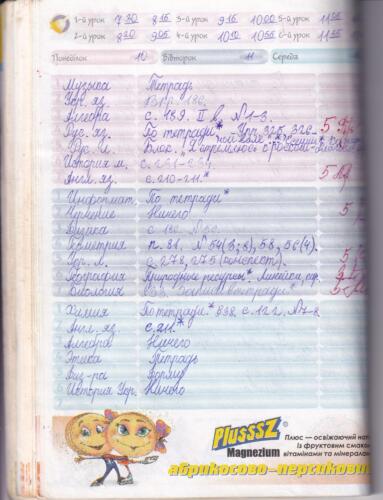 1-й урок 7 30 8 15 3-й урок 9 15 10 00 5-й урок 11
2-й урок 8 20 9 05 4-й урок 10 10 10 55 6-й урок 11 55
Понеділок 10 Вівторок 11 Середа
Музыка Тетрадь
Укр. яз.
Алгебра с. 189. II в, №1-3.
Рус. яз. По тетради*
Рус. л. Блок.
История м. с. 231-237.
Англ. яз. с. 210-211.*
Информат. По тетради*
Черчение Ничего
Физика с. 180
Геометрия п. 81, № 54(в;г), 58, 56(4).
Укр. л. с. 273, 275 (конспект).
География Природные ресурсы* Линейка,
Биология
Химия По тетради.* 838, с. 121, №7-8
Англ. яз. с. 211.*
Алгебра Ничего
Этика Тетрадь
Физ-ра Форма
История Укр. Ничего
PlusssZ
Magnezium
Плюс — освіжаючий
із фруктовим
вітамінами та
абрикосово-персикови